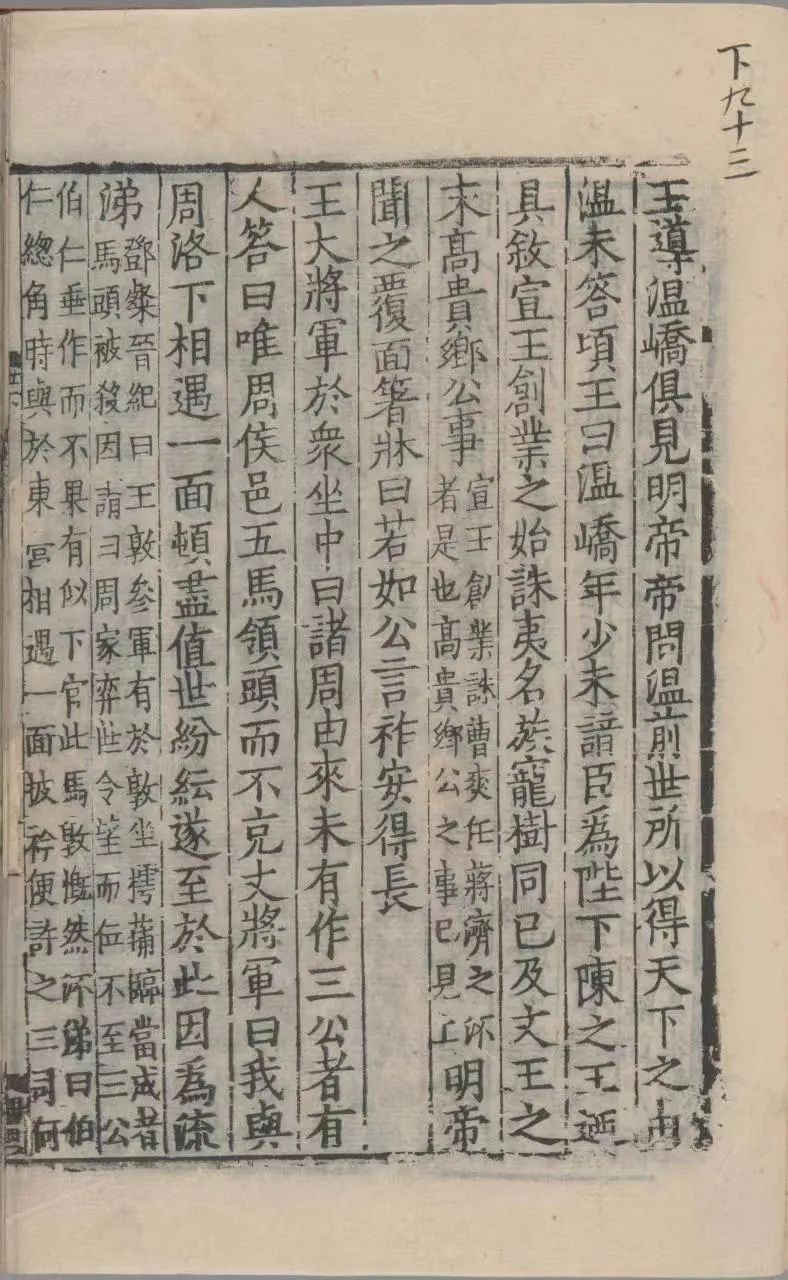 下九十三
王導温嶠俱見明帝帝問温前世所以得天下之由
温未答頃王曰温嶠年少未諳臣爲陛下陳之王迺
具敘宣王創業之始誅夷名族寵樹同已及文王之
末髙貴鄉公事宣王創業誅曹爽任蔣濟之流
者是也髙貴鄉公之事已見上明帝
聞之覆面著牀曰若如公言祚安得長
王大將軍於衆坐中曰諸周由來未有作三公者有
人答曰唯周侯邑五馬領頭而不克大將軍曰我與
周洛下相遇一面頓盡值世紛紜遂至於此因爲流
涕鄧粲晉紀曰王敦參軍有於敦坐樗蒱臨當成者
馬頭被殺因謂曰周家弈世令望而位不至三公
伯仁垂作而不果有似下官此馬敦慨然流涕曰伯
仁總角時與於東宮相遇一面披衿便許之三司何